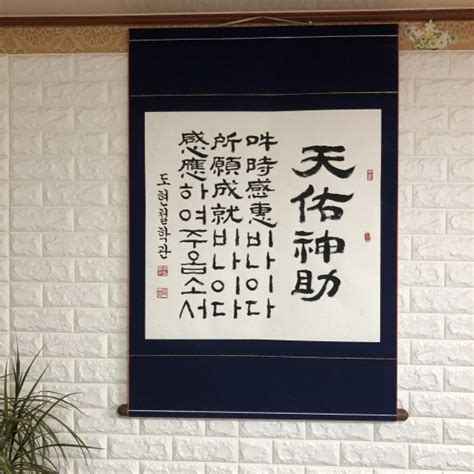 天佑神助
吽時感惠비나이다
所願成就비나이다
感應하여주옵소서
도현철학관